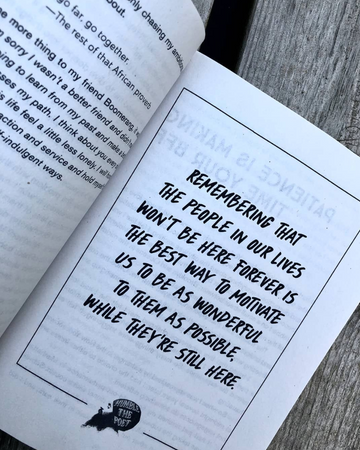 only chasing my
about.
go far, go together.
—The rest of that African proverb
more thing to my friend Boomerang,
sorry I wasn't a better friend and
to learn from my past and make
my path. I think about you
life feel a little less lonely. I will
action and service and hold
self-indulgent ways.
PATIENCE IS MAKING
REMEMBERING THAT
THE PEOPLE IN OUR LIVES
WON'T BE HERE FOREVER IS
THE BEST WAY TO MOTIVATE
US TO BE AS WONDERFUL
TO THEM AS POSSIBLE,
WHILE THEY'RE STILL HERE.
HUMBLE
THE
POET